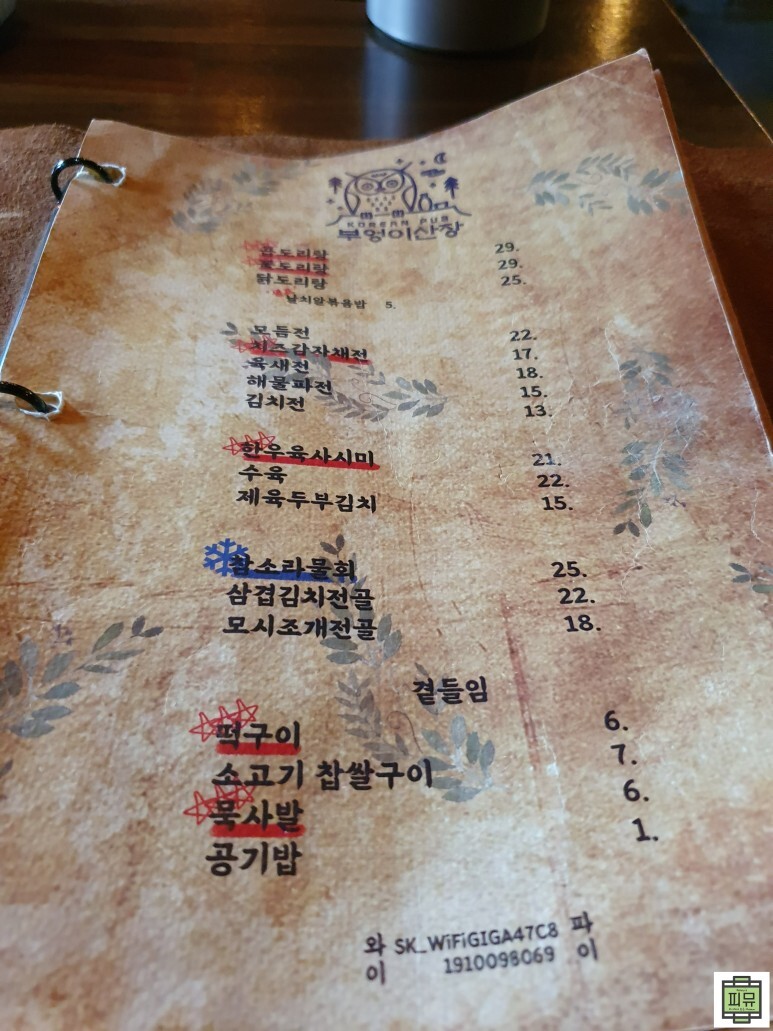 KOREAN PUB
부엉이산장
29.
29.
닭도리탕 25.
날치알볶음밥 5.
모듬전 22.
치즈감자채전 17.
육새전 18.
해물파전 15.
김치전 13.
한우육사시미 21.
수육 22.
제육두부김치 15.
참소라물회 25.
삼겹김치전골 22.
모시조개전골 18.
곁들임
떡구이 6.
소고기 찹쌀구이 7.
묵사발 6.
공기밥 1.
와이 SK_WiFiGIGA47C8 파이
1910098069
피뮤